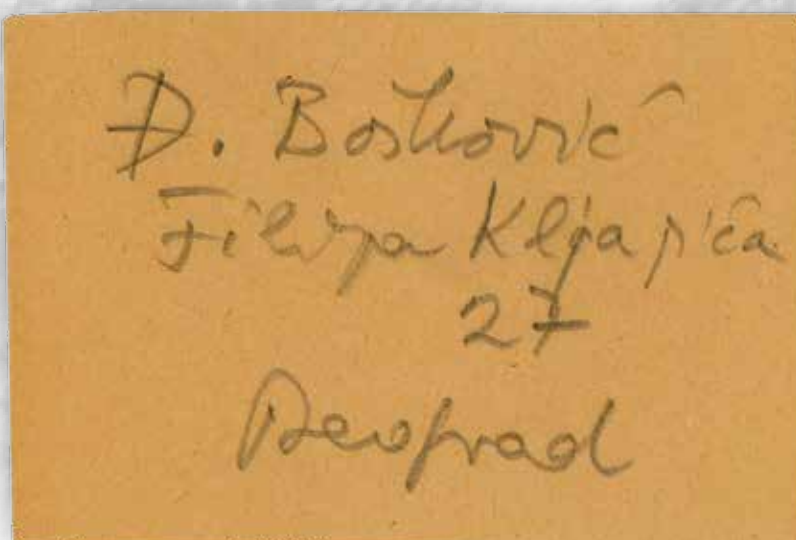 Đ. Bošković
Filipa Kljajića
27
Beograd